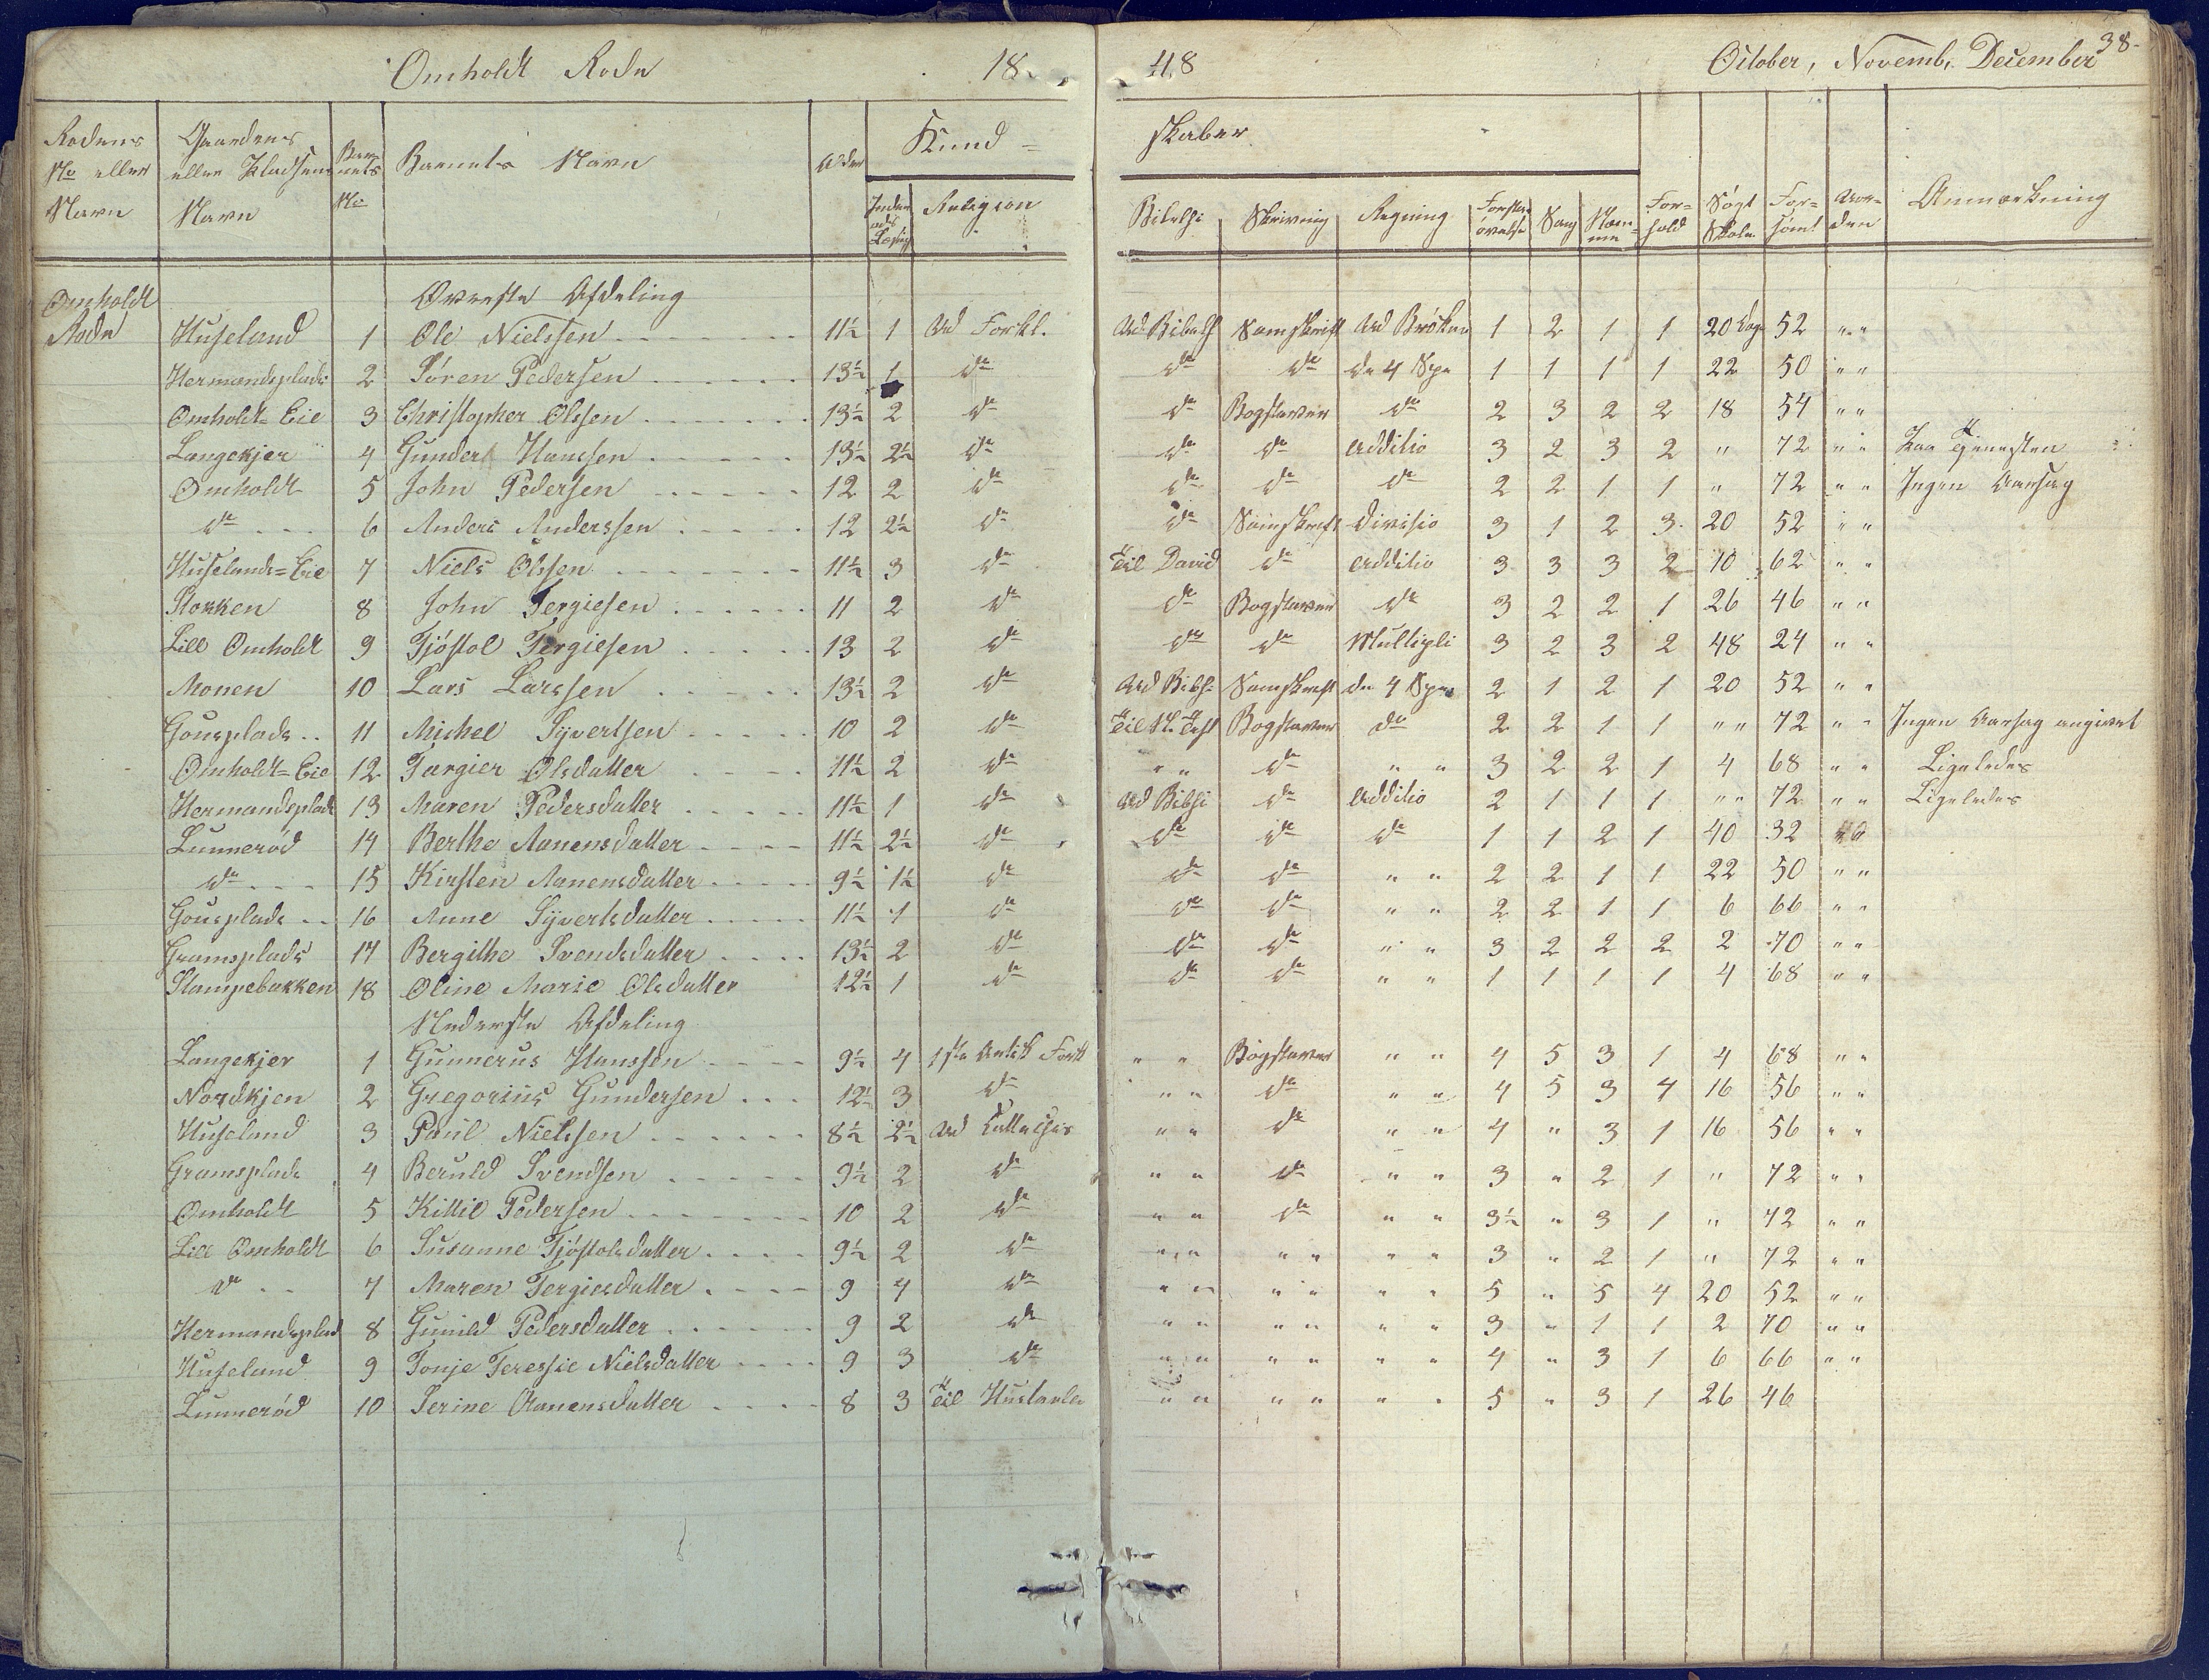 Omholdt Rode 18 48 October, Novemb. December 38-
Rodens No eller Navn
Gaardens eller Pladsens Navn
Barnets No
Barnets Navn
Alder
Kund= skaber
Indenads Læsng
Religion
Bibelhi
Skrivning
Regning
Forstandsøvelse
Sang
Nemme
Forhold
Søgt Skole
Forsømt
Orden
Anmærkning
Omholdt Rode
Øverste Afdeling
Huseland 1 Ole Nielssen 11½ 1 Ud Forkl. Ud Bibelh Samskrift Ud Brøken 1 2 1 1 20 Dage 52 " "
Hermandsplads 2 Søren Pedersen 13½ 1 do do do de 4 Spe 1 1 1 1 22 50 " "
Omholdt=Eie 3 Christopher Olssen 13½ 2 do do Bogstaver do 2 3 2 2 18 54 " "
Langekjer 4 Gunder Hanssen 13½ 2½ do do do Additio 3 2 3 2 " 72 " " Paa Tjenesten
Omholdt 5 John Pedersen 12 2 do do do do 2 2 1 1 " 72 " " Ingen Aarsag
do 6 Anders Anderssen 12 2½ do do Samskrift Divisio 3 1 2 3 20 52 " "
Huselands=Eie 7 Niels Olssen 11½ 3 do Til David do Additio 3 3 3 2 10 62 " "
Stokken 8 John Tergiesen 11 2 do do Bogstaver do 3 2 2 1 26 46 " "
Lill Omholdt 9 Tjøstol Tergiesen 13 2 do do do Multipli 3 2 3 2 48 24 " "
Monen 10 Lars Larssen 13½ 2 do Ud Bibh Samskrift de 4 Spe 2 1 2 1 20 52 " "
Gousplads 11 Michel Syvertsen 10 2 do Til N. Test Bogstaver do 2 2 1 1 " " 72 " " Ingen Aarsag angivet
Omholdt=Eie 12 Tergier Olsdatter 11½ 2 do " " do " " 3 2 2 1 4 68 " " Ligeledes
Hermandsplads 13 Maren Pedersdatter 11½ 1 do Ud Bibhi do Additio 2 1 1 1 " " 72 " " Ligeledes
Lunnerød 14 Berthe Aanensdatter 11½ 2½ do do do do 1 1 2 1 40 32 " "
do 15 Kirsten Aanensdatter 9½ 1½ do do do " " 2 2 1 1 22 50 " "
Gousplads 16 Anne Syvertsdatter 11½ 1 do do do " " 2 2 1 1 6 66 " "
Gramsplads 17 Bergithe Svendsdatter 13½ 2 do do do " " 3 2 2 2 2 70 " "
Stampebakken 18 Oline Marie Olsdatter 12½ 1 do do do " " 1 1 1 1 4 68 " "
Nederste Afdeling
Langekjer 1 Gunnerus Hanssen 9½ 4 1ste Artik Fork " " Bogstaver " " 4 5 3 1 4 68 " "
Nordkjen 2 Gregorius Gundersen 12½ 3 do " " do " " 4 5 3 4 16 56 " "
Huseland 3 Paul Nielssen 8½ 2½ Ud " " do " " 4 " 3 1 16 56 " "
Gramsplads 4 Beruld Svendsen 9½ 2 do " " do " " 3 " 2 1 " 72 " "
Omholdt 5 Kittil Pedersen 10 2 do " " do " " 3½ " 3 1 " 72 " "
Lill Omholdt 6 Susanne Tjøstolsdatter 9½ 2 do " " " " " " 3 " 2 1 " 72 " "
do 7 Maren Tergiesdatter 9 4 do " " " " " " 5 " 5 4 20 52 " "
Hermandsplad 8 Gunild Pedersdatter 9 2 do " " " " " " 3 " 1 1 2 70 " "
Huseland 9 Tonje Teressie Nielsdatter 9 3 do " " " " " " 4 " 3 1 6 66 " "
Lunnerød 10 Serine Aanensdatter 8 3 Til Hustavle " " " " " " 5 " 3 1 26 46